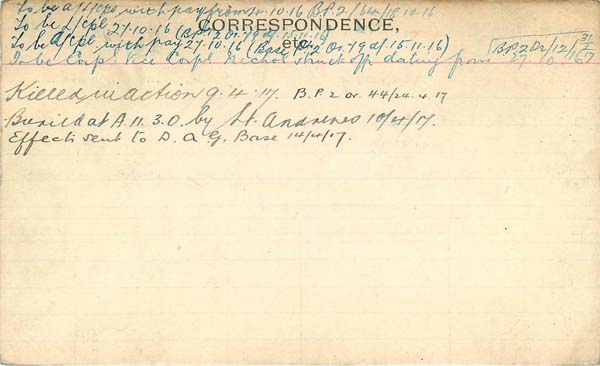 To be a/L/cpl with pay from 10.16 B.P. 2 / 18.10.16
CORRESPONDENCE,
To be L/cpl 27.10.16 (B.P. 2 Or. 79 d/ 15.11.16)
etc.
To be a/cpl with pay 27.10.16 (Base 2 Or. 79 d/ 15.11.16)
To be Corpl Vice Corpl Nichol struck off dating from 27 10 16 B.P. 2 Or/12/ 31/1/17
Killed in action 9.4.17. B.P. 2 or 44/24.4.17
Buried at A.11.3.0 by Lt. Andrews 10/4/17.
Effects sent to D.A.G. Base 14/4/17.